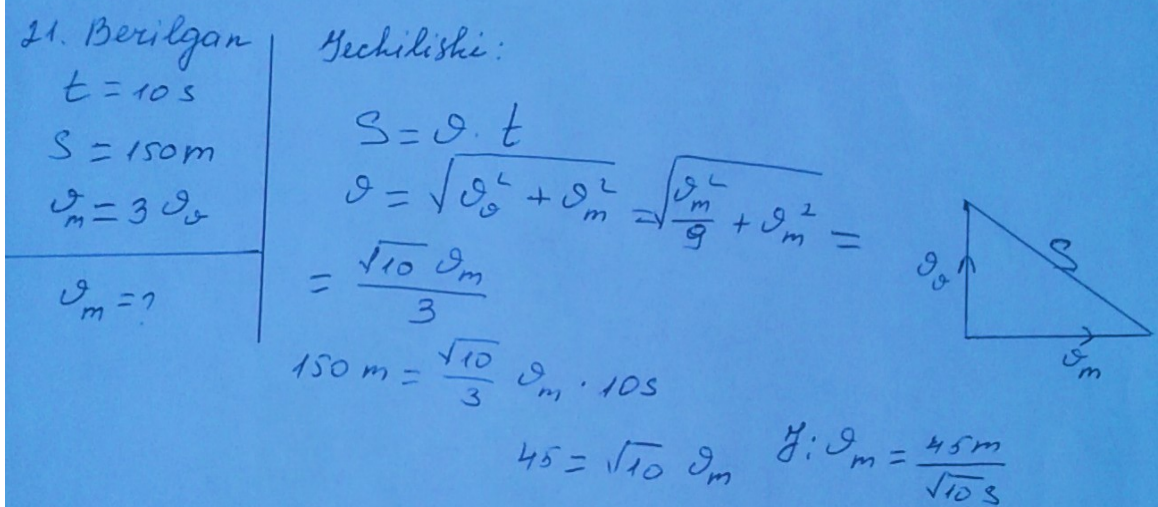 21. Berilgan
t = 10 s
S = 150 m
ϑₘ = 3 ϑᵥ
ϑₘ = ?
Yechilishi:
S = ϑ · t
ϑ = √(ϑᵥ² + ϑₘ²) = √(ϑₘ²/9 + ϑₘ²) =
= √10 ϑₘ / 3
150 m = √10/3 ϑₘ · 10 s
45 = √10 ϑₘ J: ϑₘ = 45 m / √10 s
ϑᵥ
S
ϑₘ